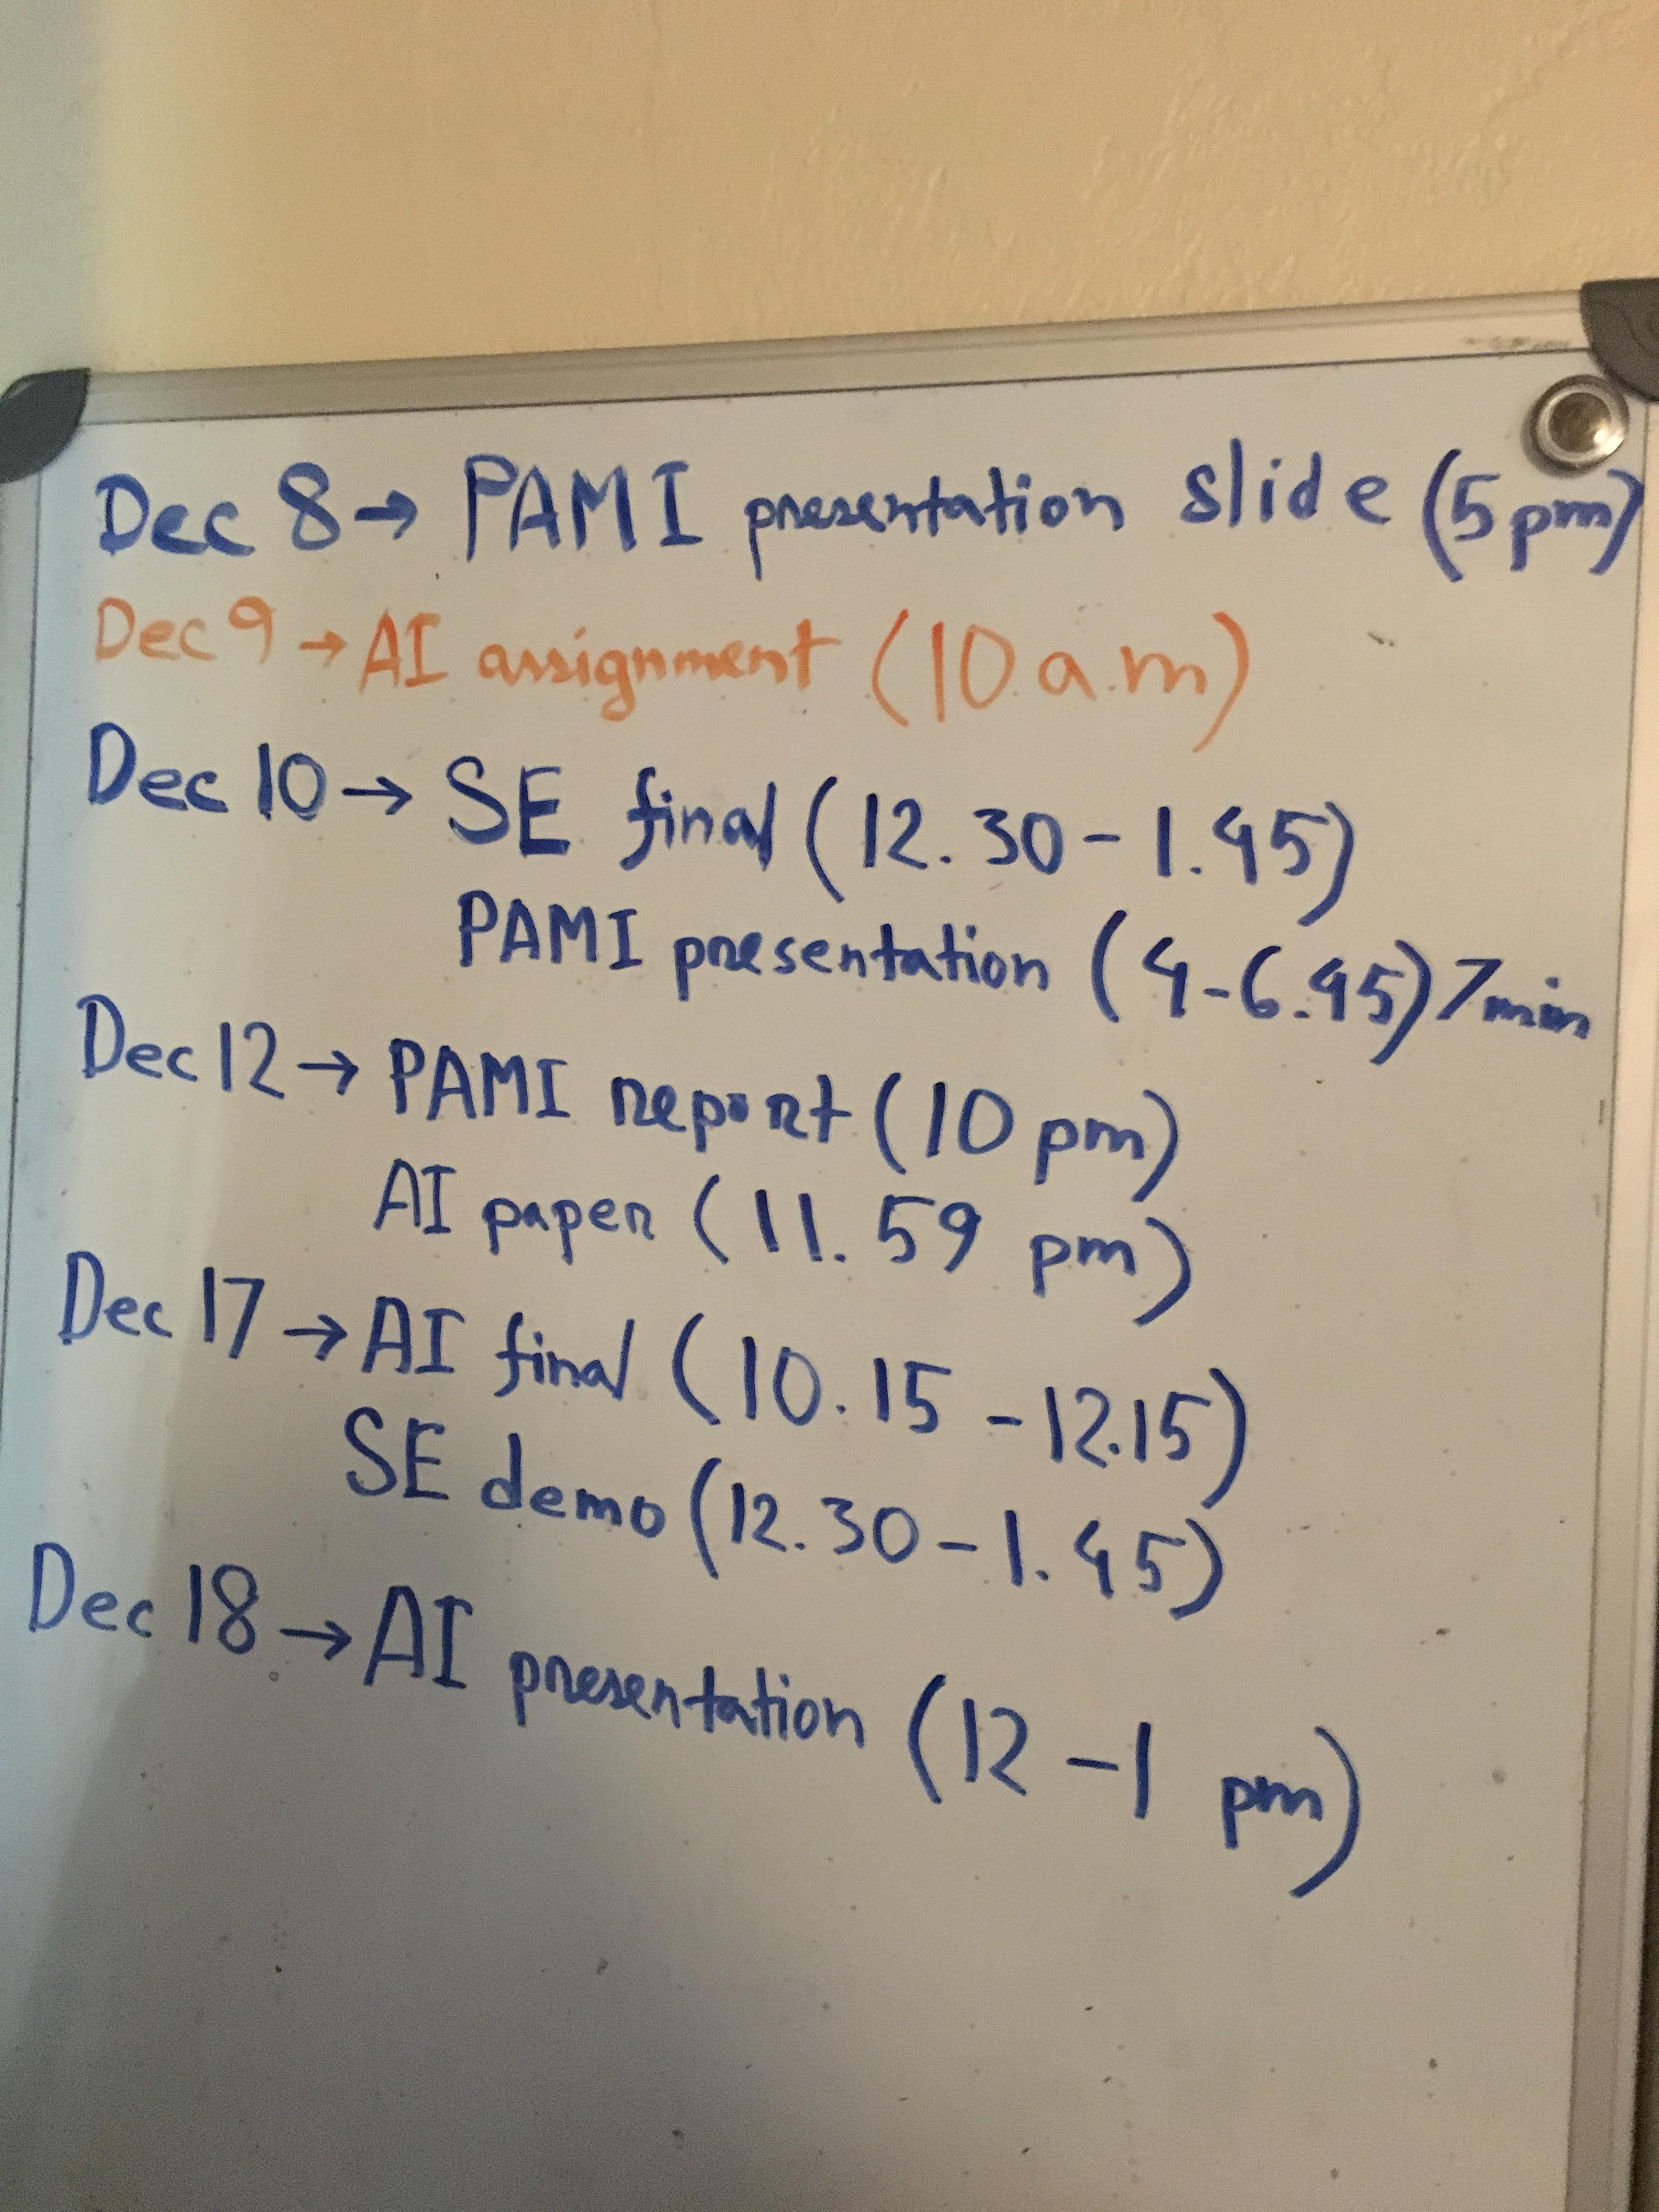 Dec 8 → PAMI presentation slide (5 pm)
Dec 9 → AI assignment (10 a.m)
Dec 10 → SE final (12.30 - 1.45)
PAMI presentation (4 - 6.45) 7 min
Dec 12 → PAMI report (10 pm)
AI paper (11.59 pm)
Dec 17 → AI final (10.15 - 12.15)
SE demo (12.30 - 1.45)
Dec 18 → AI presentation (12 - 1 pm)